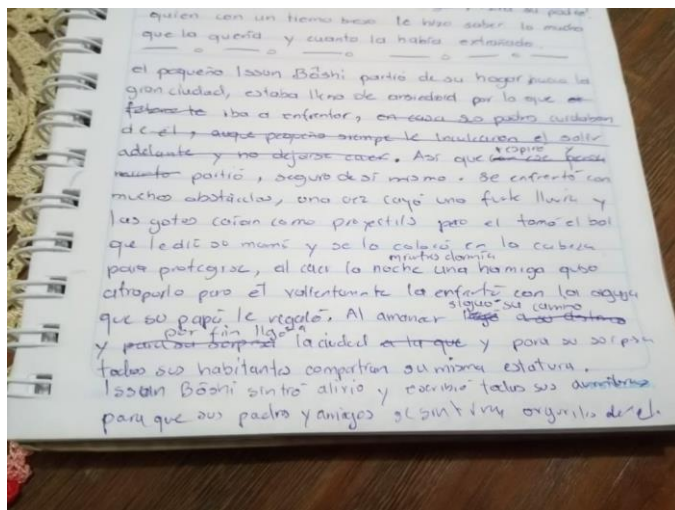 quien con un tierno beso le hizo saber lo mucho
que la quería y cuanto la había extrañado.
el pequeño Issun Bōshi partió de su hogar hacia la
gran ciudad, estaba lleno de ansiedad por lo que
iba a enfrentar, en casa sus padres cuidaban
de él, auque pequeño siempre le inculcaron el salir
adelante y no dejarse caer. Así que respiró
partió, seguro de sí mismo. se enfrentó con
muchos obstáculos, una vez cayó una fuerte lluvia y
las gotas caían como proyectils pero el tomó el bol
que le dió su mamá y se lo colocó en la cabeza
mientras dormía
para protegerse, al caer la noche una hormiga quiso
atraparlo pero él valientemente la enfrentó con la aguja
que su papá le regaló. Al amanecer siguió su camino
por fin llegó a
y para su sorpresa la ciudad a la que y para su sorpresa
todos sus habitantes compartían su misma estatura.
Issun Bōshi sintió alivio y escribió todas sus aventuras
para que sus padres y amigos se sintieran orgullosos de el.